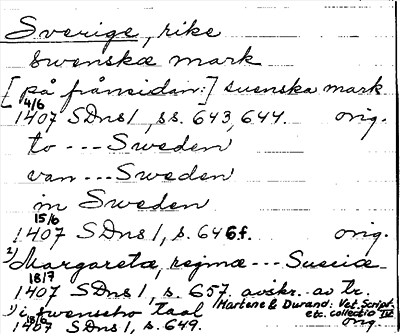 Sverige, rike
Swenskæ mark
[på frånsidan:] suenska mark
4/6
1407 SDns 1, ss. 643, 644. orig.
to --- Sweden
van --- Sweden
in Sweden
15/6
1407 SDns 1, s. 646f. orig.
2) Margaretæ, reginæ --- Sueciæ
18/7
1407 SDns 1, s. 657, avskr. av tr.
Martene & Durand: Vet. Script.
etc. collectio IV
1) i swenscho taal
18/6
1407 SDns 1, s. 649. orig.